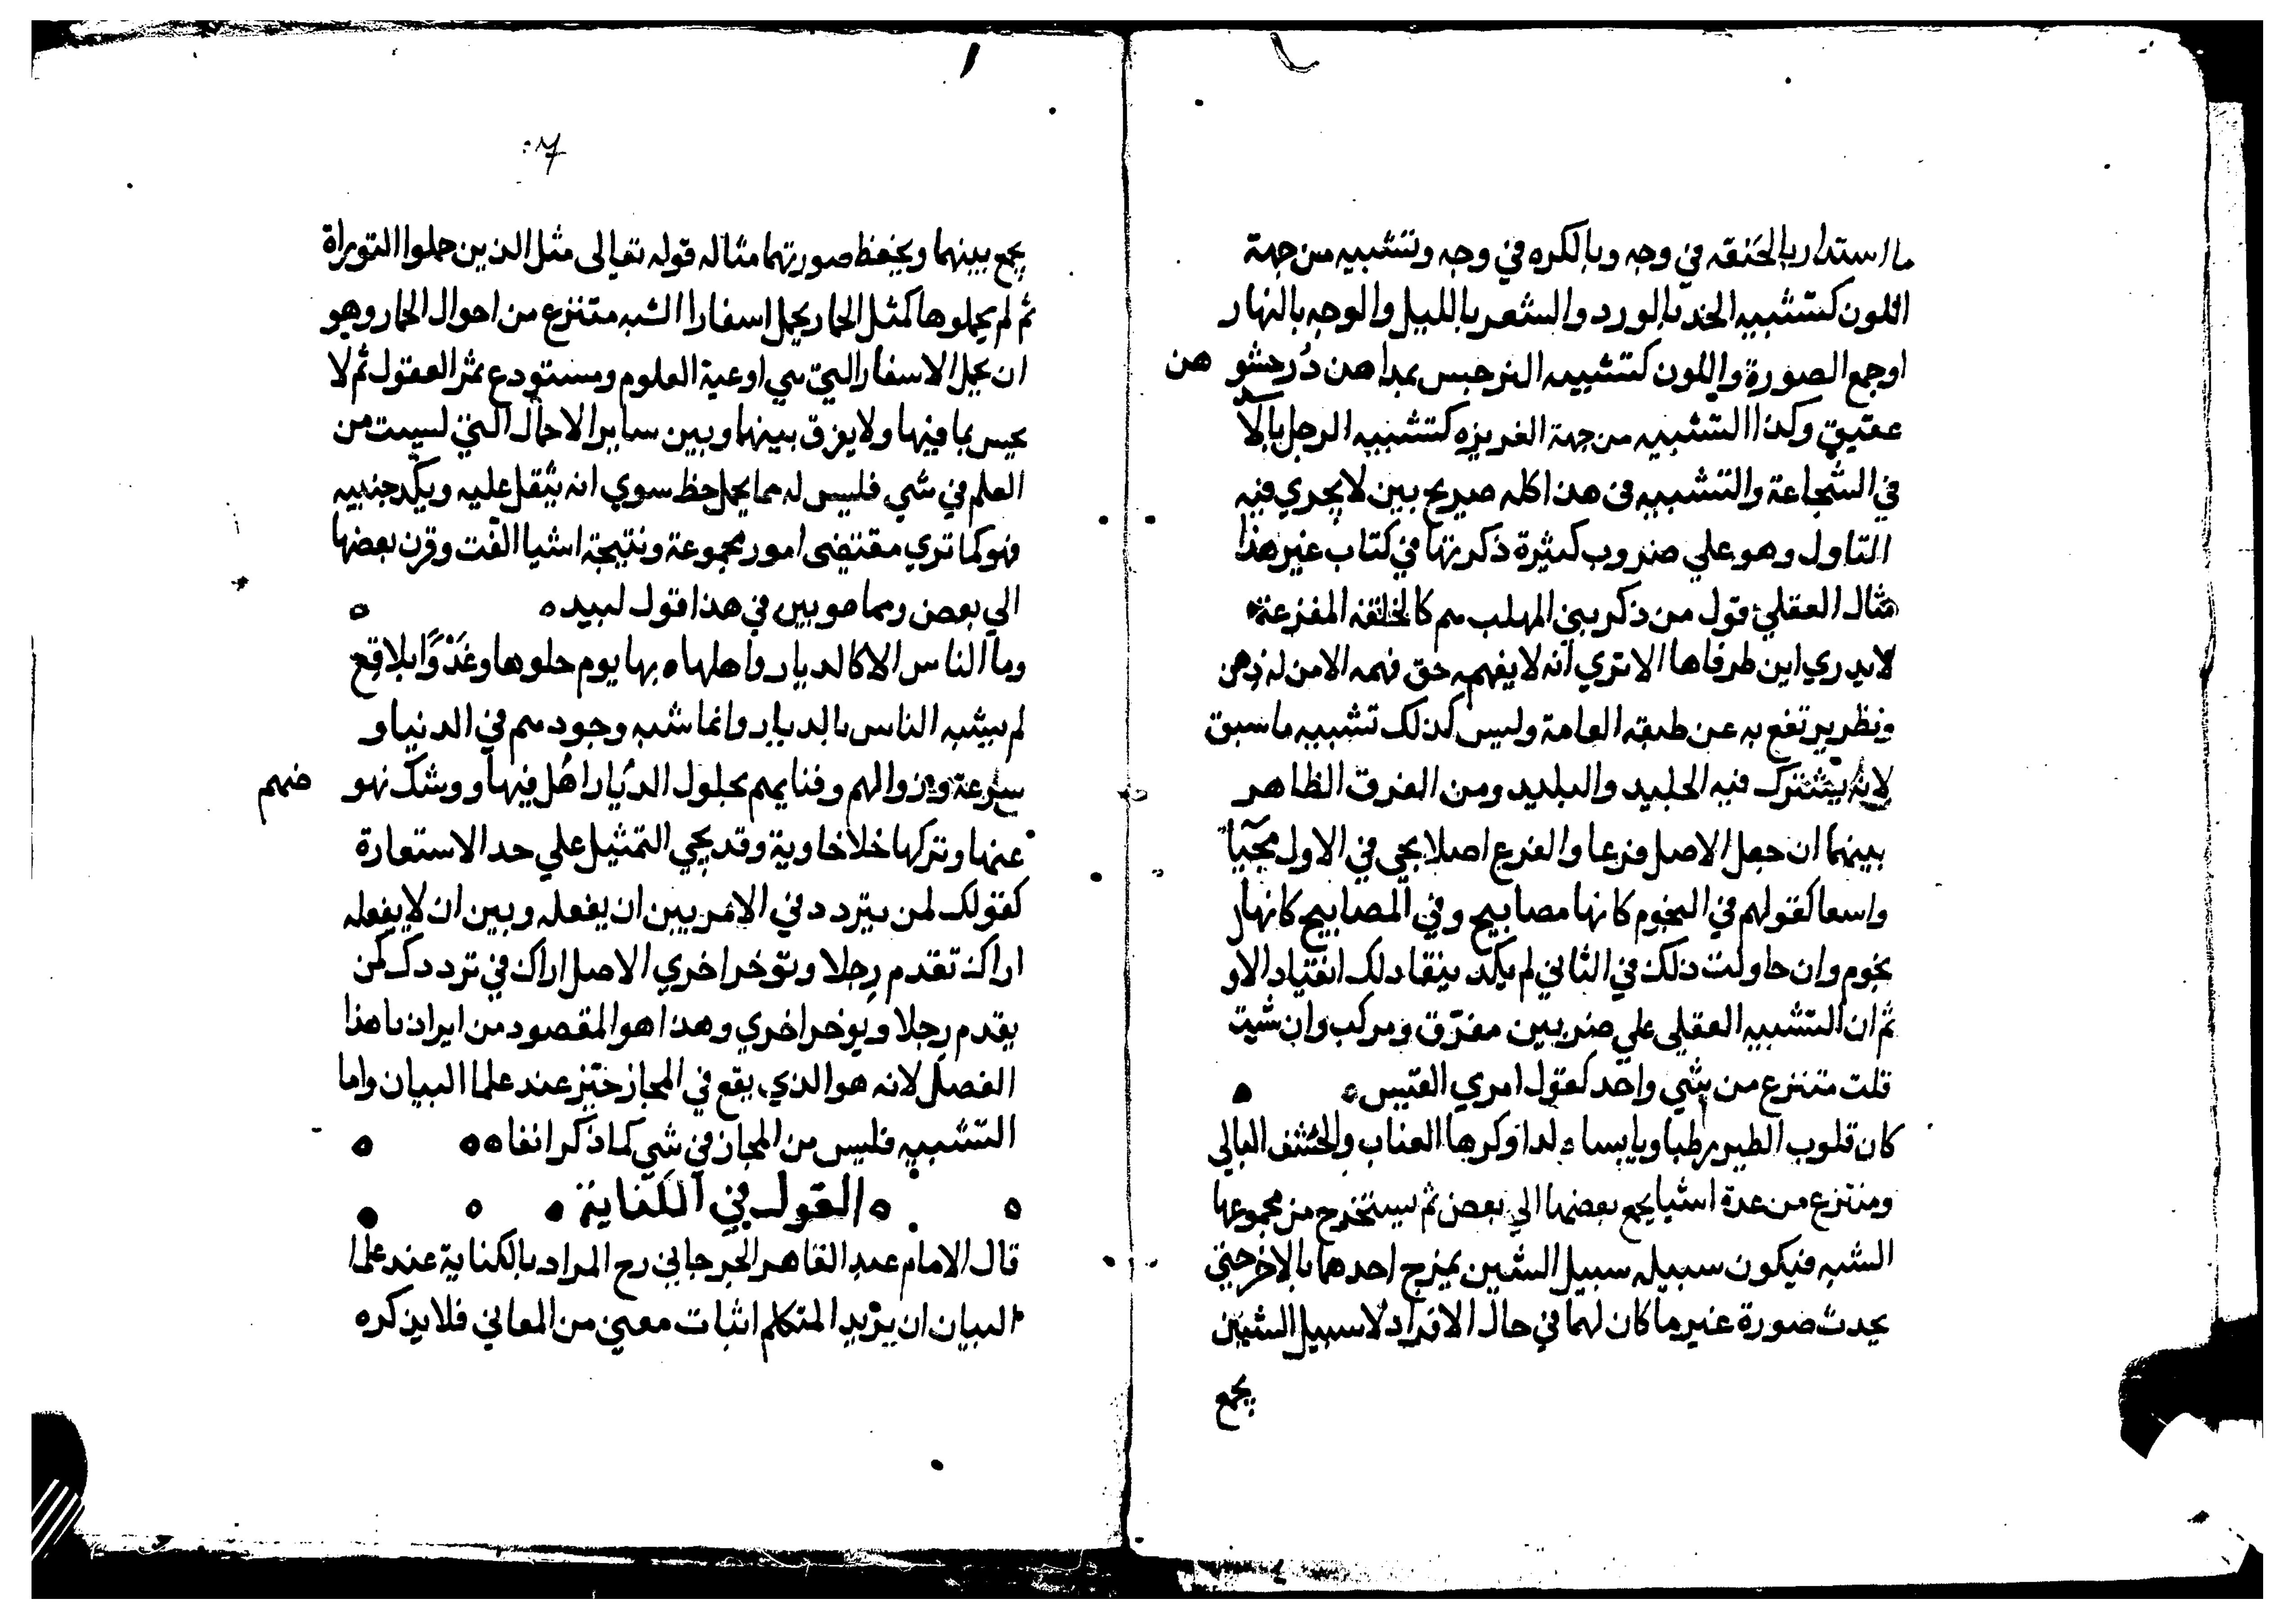 ما استدار بالحنقه في وجه وبالكره في وجه وتشبيه من جهة
اللون كتشبيه الخد بالورد والشعر بالليل والوجه بالنهار
اوجمع الصورة واللون كتشبيه النرجس بمداهن در حشو هن
عقيق وكذا التشبيه من جهة الغريزه كتشبيه الرجل بالا
في الشجاعة والتشبيه فى هذا كله صريح بين لا يجري فيه
التاول وهو علي ضروب كثيرة ذكرتها في كتاب غير هذا
مثال العقلي قول من ذكر بني المهلب هم كالحلقة المفرغة
لا يدري اين طرفاها الا تري انه لا يفهمه حق فهمه الا من له ذهن
ونظر يرتفع به عن طبقه العامة وليس كذلك تشبيه ما سبق
لانه يشترك فيه الجليد والبليد ومن الفرق الظاهر
بينهما ان جعل الاصل فرعا والفرع اصلا يجى في الاول مجيا
واسعا كقولهم في النجوم كانها مصابيح وفي المصابيح كانها
نجوم وان حاولت ذلك في الثاني لم يكد ينقاد لك انقياد الاو
ثم ان التشبيه العقلي علي ضربين مفرّق ومركب وان شيت
قلت منتزع من شي واحد كقول امري القيس
كان قلوب الطير رطبا ويابسا لدا وكرها العناب والحشف البالى
ومنتزع من عدة اشيا يجمع بعضها الي بعض ثم يستخرج من مجموعها
الشبه فيكون سبيله سبيل الشين يمزج احدهما بالاخر حتي
يحدث صورة غير ما كان لهما في حال الافراد لا سبيل الشين
يجمع
يجمع بينهما ويحفظ صورتهما مثاله قوله تعالى مثل الذين حملوا التوراة
ثم لم يحملوها كمثل الحمار يحمل اسفارا الشبه منتزع من احوال الحمار وهو
ان يحمل الاسفار التي هي اوعية العلوم ومستودع ثمر العقول ثم لا
يحس بما فيها ولا يفرق بينها وبين ساير الاحمال التي ليست من
العلم في شي فليس له مما يحمل حظ سوي انه يثقل عليه ويكد جنبيه
فهو كما تري مقتضى امور مجموعة ونتيجة اشيا الفت وقرن بعضها
الي بعض ومما هو بين في هذا قول لبيد
وما الناس الا كالديار واهلها بها يوم حلوها وغَدْوًا بلاقع
لم يشبه الناس بالديار وانما شبه وجودهم في الدنيا و
سرعة زوالهم وفنايهم بحلول الديار اهل فيها ووشك نهو ضهم
عنها وتركها خلا خاوية وقد يجي التمثيل علي حد الاستعارة
كقولك لمن يتردد في الامر بين ان يفعله وبين ان لا يفعله
اراك تقدم رجلا وتوخر اخري الاصل اراك في ترددك كمن
يقدم رجلا ويوخر اخري وهذا هو المقصود من ايرادنا هذا
الفصل لانه هو الذي يقع في المجاز عند علما البيان واما
التشبيه فليس من المجاز في شي كما ذكر انفا
القول في الكناية
قال الامام عبد القاهر الجرجاني رح المراد بالكناية عند علما
البيان ان يريد المتكلم اثبات معني من المعاني فلا يذكره